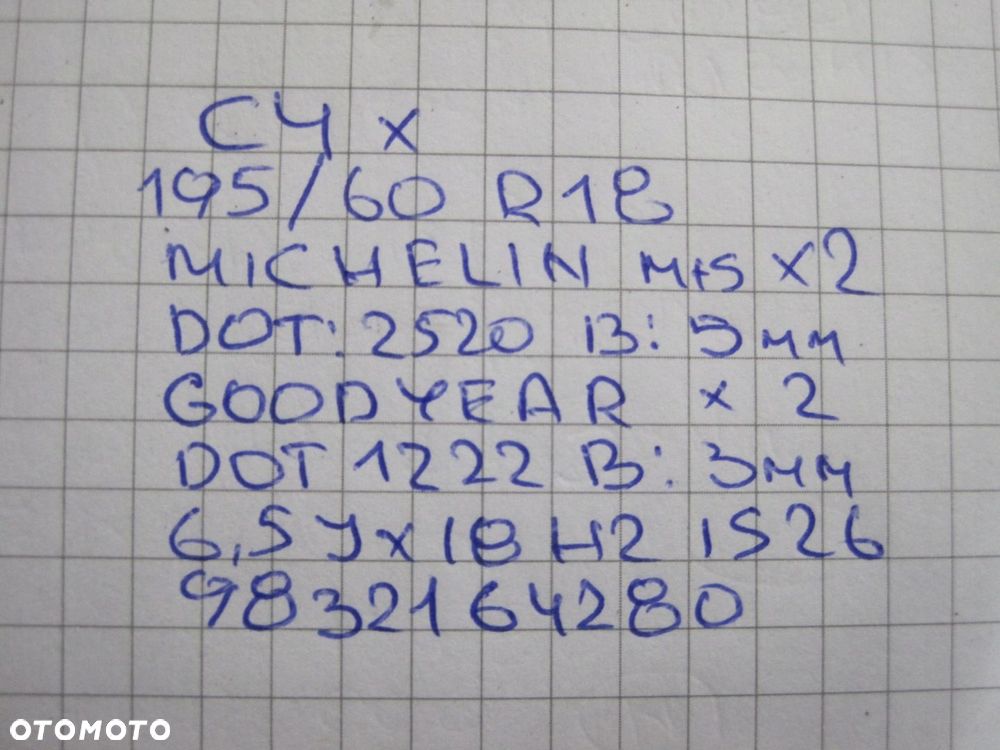 C4 x
195/60 R18
MICHELIN M+S x2
DOT: 2520 B: 5mm
GOODYEAR x 2
DOT 1222 B: 3mm
6,5Jx18 H2 IS26
9832164280
OTOMOTO